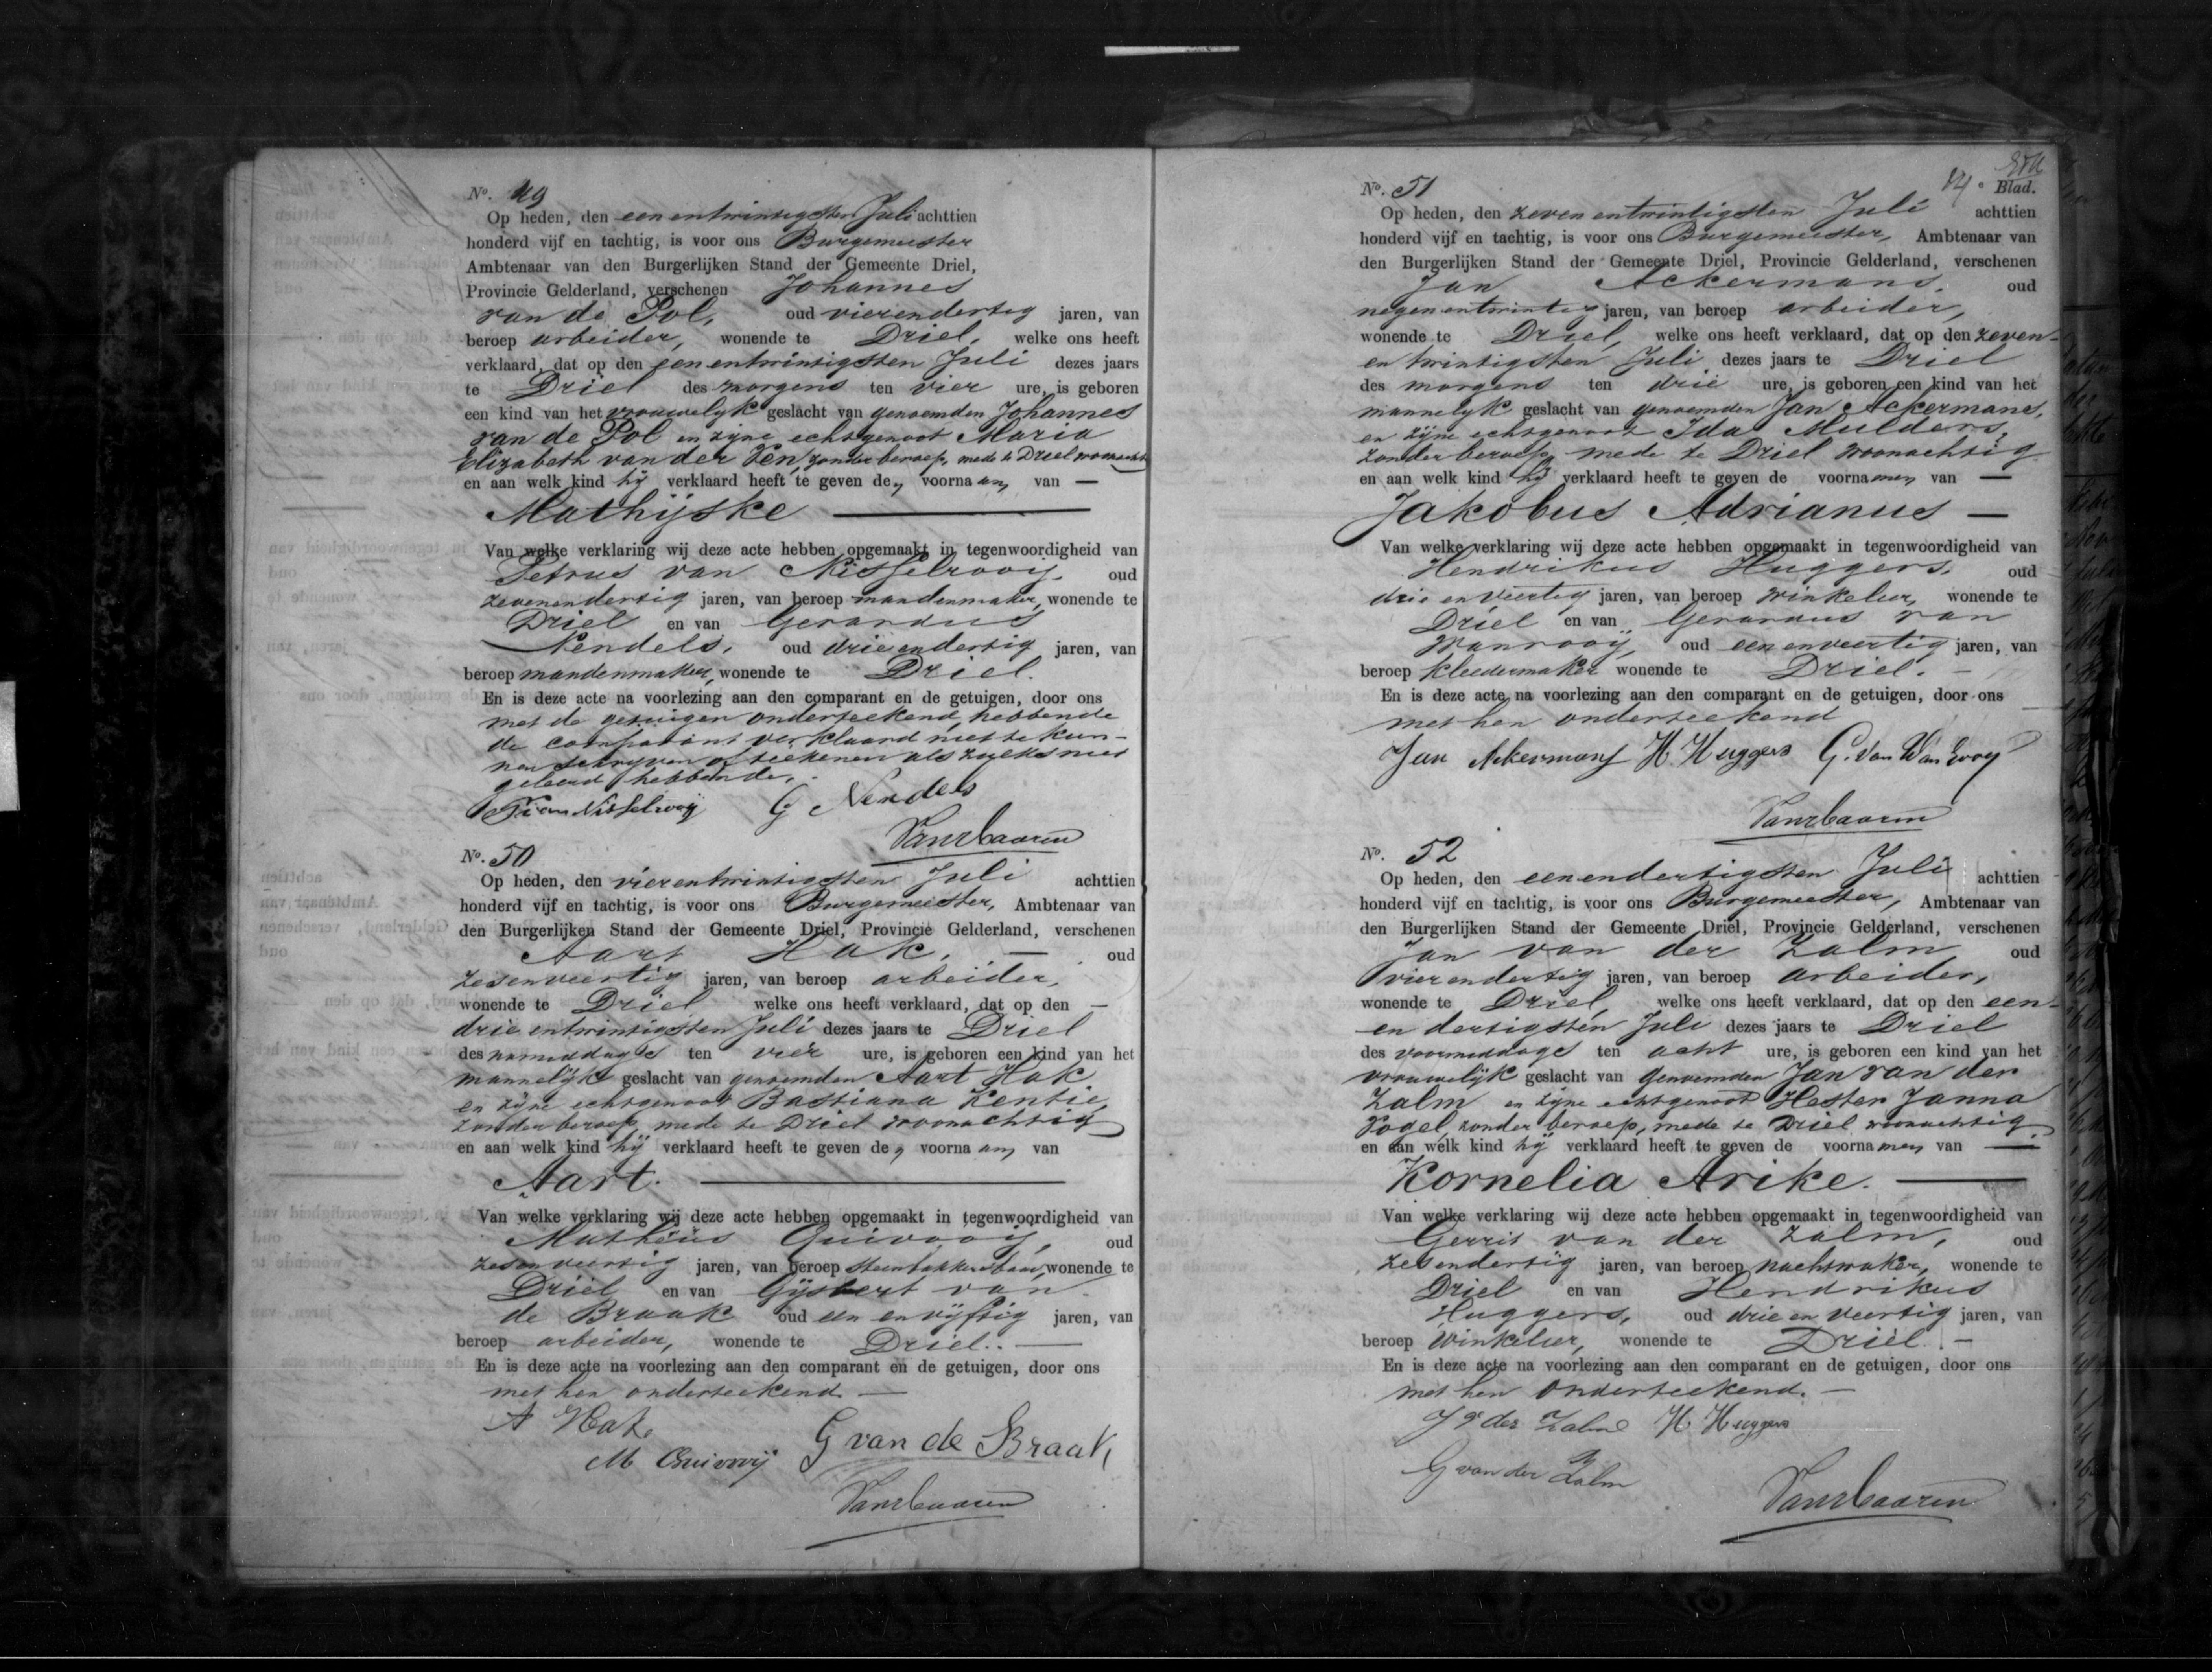 No. 49
Op heden, den een entwintigsten Juli achttien
honderd vijf en tachtig, is voor ons Burgemeester
Ambtenaar van den Burgerlijken Stand der Gemeente Driel,
Provincie Gelderland, verschenen Johannes
van de Pol, oud vierendertig jaren, van
beroep arbeider, wonende te Driel, welke ons heeft
verklaard, dat op den een entwintigsten Juli dezes jaars
te Driel des morgens ten vier ure, is geboren
een kind van het vrouwelijk geslacht van genoemden Johannes
van de Pol en zijne echtgenoot Maria
Elizabeth van der Ven, zonder beroep, mede te Driel woonachtig
en aan welk kind hij verklaard heeft te geven de voornaam van —
Mathijske
Van welke verklaring wij deze acte hebben opgemaakt in tegenwoordigheid van
Petrus van Nisselrooy, oud
zevenendertig jaren, van beroep mandenmaker, wonende te
Driel en van Gerardus
Nendels, oud drieendertig jaren, van
beroep mandenmaker, wonende te Driel.
En is deze acte na voorlezing aan den comparant en de getuigen, door ons
met de getuigen onderteekend, hebbende
de comparant verklaard niet te kun-
nen schrijven of teekenen als zulks niet
geleerd hebbende.
P van Nisselrooij G Nendels
Van Baaren
No. 50
Op heden, den vierentwintigsten Juli achttien
honderd vijf en tachtig, is voor ons Burgemeester, Ambtenaar van
den Burgerlijken Stand der Gemeente Driel, Provincie Gelderland, verschenen
Aart Hak, — oud
zesenveertig jaren, van beroep arbeider,
wonende te Driel, welke ons heeft verklaard, dat op den —
drie entwintigsten Juli dezes jaars te Driel
des namiddags ten vier ure, is geboren een kind van het
mannelijk geslacht van genoemden Aart Hak
en zijne echtgenoot Bastiana Kentie,
zonder beroep, mede te Driel woonachtig
en aan welk kind hij verklaard heeft te geven de voornaam van
Aart.
Van welke verklaring wij deze acte hebben opgemaakt in tegenwoordigheid van
Matheus Quivooij, oud
zesenveertig jaren, van beroep steenbakkersbaas, wonende te
Driel en van Gijsbert van
de Braak oud een en vijftig jaren, van
beroep arbeider, wonende te Driel. —
En is deze acte na voorlezing aan den comparant en de getuigen, door ons
met hen onderteekend. —
A Hak
M Quivooij G van de Braak
Van Baaren
14e Blad.
No. 51
Op heden, den zeven entwintigsten Juli achttien
honderd vijf en tachtig, is voor ons Burgemeester, Ambtenaar van
den Burgerlijken Stand der Gemeente Driel, Provincie Gelderland, verschenen
Jan Ackermans, oud
negenentwintig jaren, van beroep arbeider,
wonende te Driel, welke ons heeft verklaard, dat op den zeven-
entwintigsten Juli dezes jaars te Driel
des morgens ten drie ure, is geboren een kind van het
mannelijk geslacht van genoemden Jan Ackermans,
en zijne echtgenoot Ida Mulders,
zonder beroep mede te Driel woonachtig
en aan welk kind hij verklaard heeft te geven de voornamen van —
Jakobus Adrianus —
Van welke verklaring wij deze acte hebben opgemaakt in tegenwoordigheid van
Hendrikus Huggers, oud
drie en veertig jaren, van beroep winkelier, wonende te
Driel en van Gerardus van
Wanrooij, oud eenenveertig jaren, van
beroep kleedermaker wonende te Driel. —
En is deze acte na voorlezing aan den comparant en de getuigen, door ons
met hen onderteekend
Jan Ackermans H. Huggers G. van Wanrooy
Van Baaren
No. 52
Op heden, den eenendertigsten Juli achttien
honderd vijf en tachtig, is voor ons Burgemeester, Ambtenaar van
den Burgerlijken Stand der Gemeente Driel, Provincie Gelderland, verschenen
Jan van der Zalm oud
vierendertig jaren, van beroep arbeider,
wonende te Driel, welke ons heeft verklaard, dat op den een-
en dertigsten Juli dezes jaars te Driel
des voormiddags ten acht ure, is geboren een kind van het
vrouwelijk geslacht van genoemden Jan van der
Zalm en zijne echtgenoot Hester Janna
Vogel, zonder beroep, mede te Driel woonachtig
en aan welk kind hij verklaard heeft te geven de voornamen van —
Kornelia Arike.
Van welke verklaring wij deze acte hebben opgemaakt in tegenwoordigheid van
Gerrit van der Zalm, oud
zesendertig jaren, van beroep nachtwaker, wonende te
Driel en van Hendrikus
Huggers, oud drie en veertig jaren, van
beroep winkelier, wonende te Driel. —
En is deze acte na voorlezing aan den comparant en de getuigen, door ons
met hen onderteekend. —
J v der Zalm H Huggers
G van der Zalm
Van Baaren